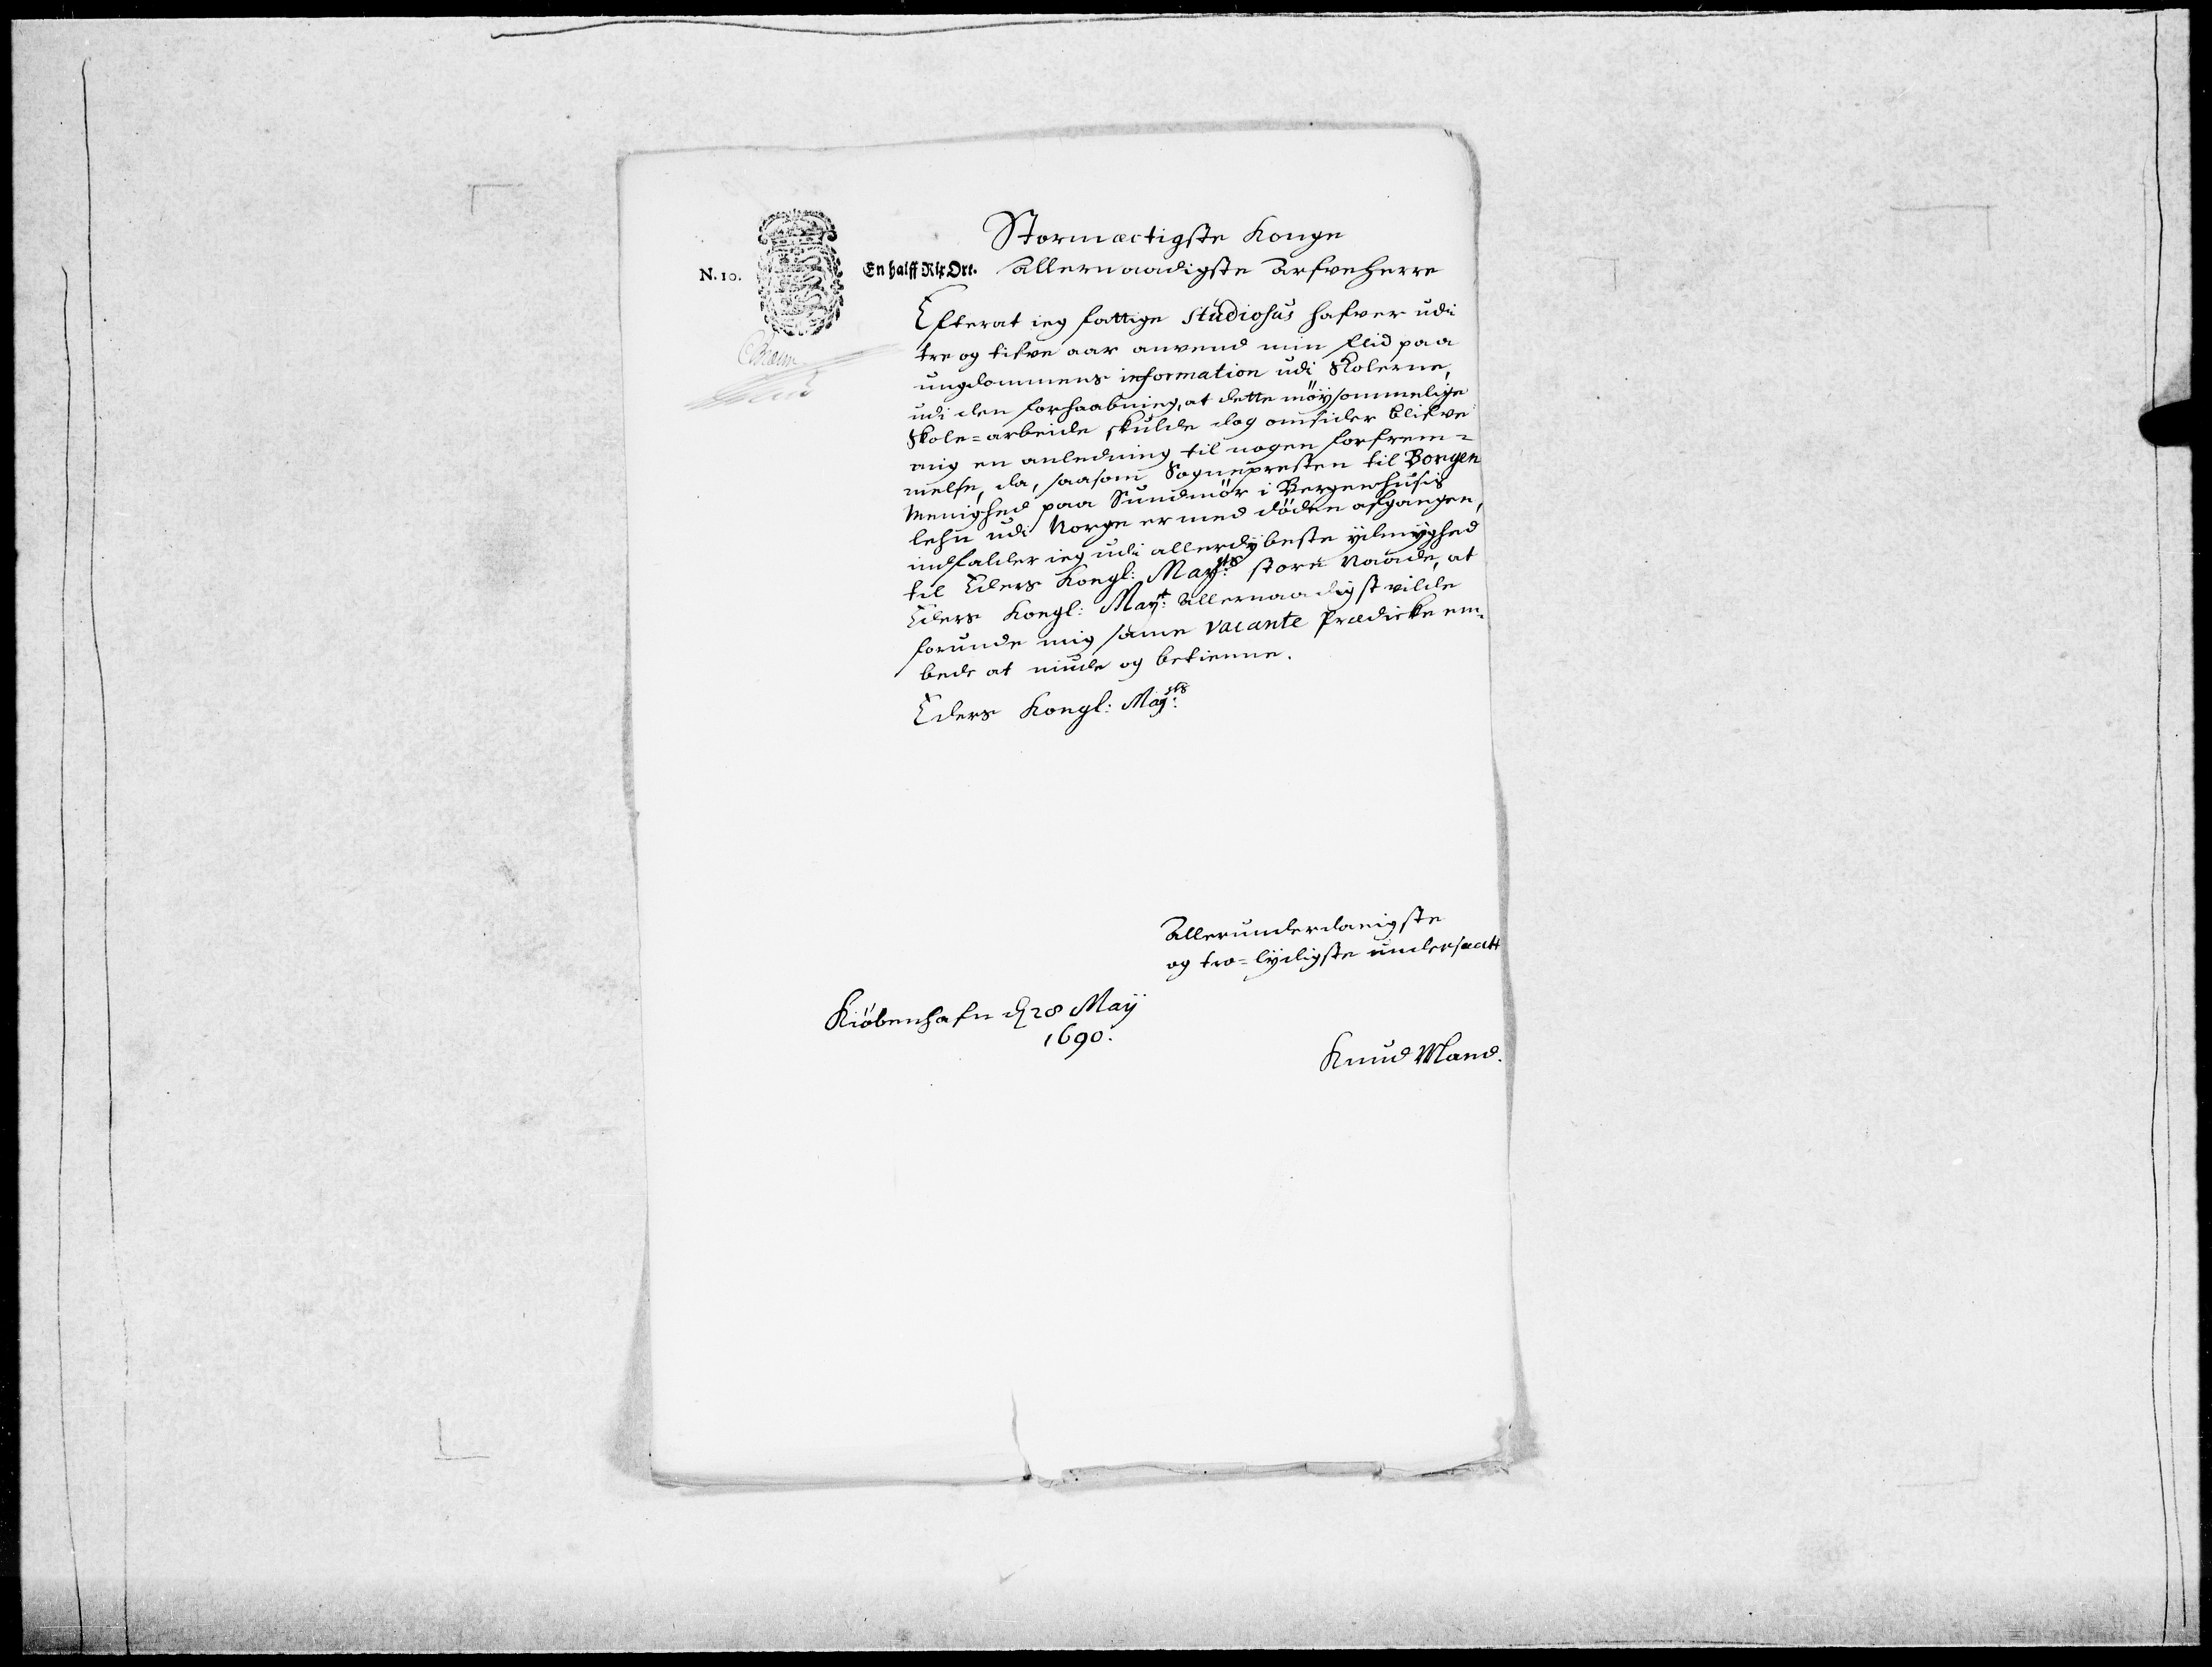 Stormæctigste Konge
N. 10.
En halff Rix Ort.
Allernaadigste Arfveherre
Efterat ieg fattige Studiosus hafver udi
tre og tifve aar anvend min flid paa
ungdommens information udi Skolerne,
udi den forhaabning, at dette möysommelige
Skole=arbeide skulde dog omsider blifve
mig en anledning til nogen forfrem=
melse, da, saasom Sognepresten til Borgen
Menighed paa Sundmör i Bergenhusis
lehn udi Norge er med döden afgangen,
indfalder ieg udi allerdybeste ydmyghed
til Eders Kongl: Mayts: store Naade, at
Eders Kongl: Mayt: Allernaadigst vilde
forunde mig samme vacante Prædicke em=
bede at niude og betienne.
Eders Kongl: Mayts:
Allerunderdanigste
og tro=lydigste undersaatt
Kiöbenhafn d 28 Maij
1690.
Knud Mand.